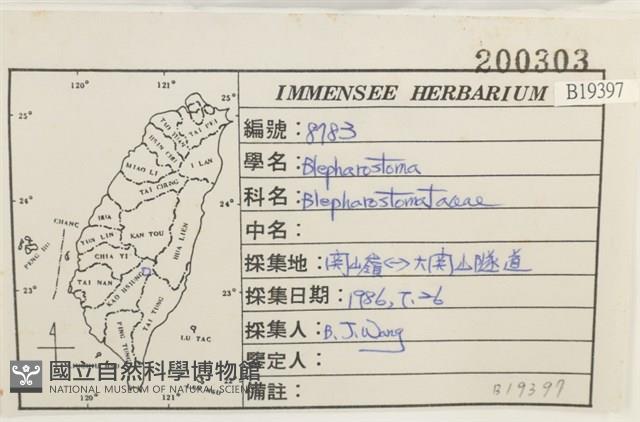 200303
IMMENSEE HERBARIUM
B19397
編號：8783
學名：Blepharostoma
科名：Blepharostomataceae
中名：
採集地：関山嶺<->大関山隧道
採集日期：1986,7.26
採集人：B.J.Wang
鑒定人：
備註：
B19397
120°
121°
25°
25°
TAI PEI
I LAN
MIAO LI
TAI CHUNG
24°
24°
CHANG
HUA
HUA LIEN
PENG HU
YUN LIN
KAN TOU
CHIA YI
TAI NAN
KAO HSIUNG
23°
23°
TAI TUNG
PING TUNG
LU TAC
120°
121°
國立自然科學博物館
NATIONAL MUSEUM OF NATURAL SCIENCE